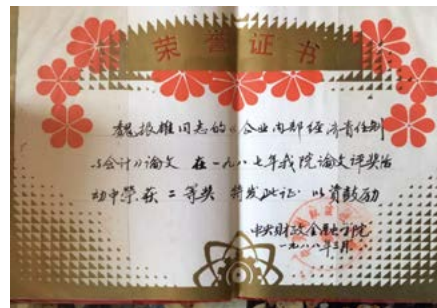 荣誉证书
魏振雄同志的《企业内部经济责任制
与会计》论文 在一九八七年我院论文评奖活
动中荣获 二等奖 特发此证 以资鼓励
中央财政金融学院
一九八八年三月